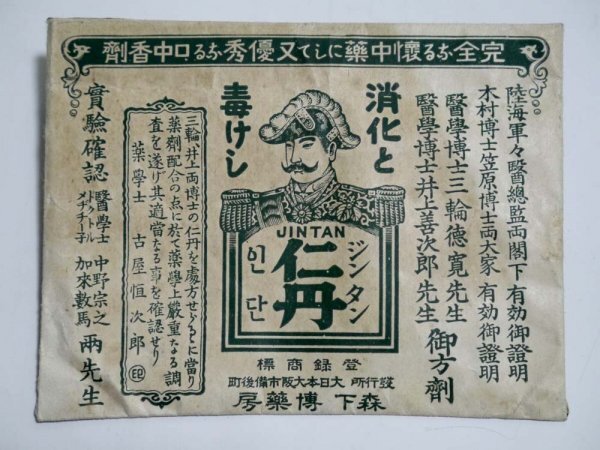 劑香中口るな秀優又てしに藥中懷るな全完
陸海軍々醫總監両閣下有効御證明
木村博士笠原博士両大家有効御證明
醫學博士三輪德寬先生
醫學博士井上善次郎先生
御方劑
消化と
毒けし
JINTAN
ジンタン
仁丹
인단
三輪、井上両博士の仁丹を處方せらるゝに當り
藥劑配合の点に於て藥學上嚴重なる調
査を遂げ其適當なる事を確認せり
藥學士 古屋恒次郎 印
實驗確認
醫學士 中野宗之
ドクトルメヂチー子 加來數馬
両先生
標商録登
町後備市阪大本日大 所行發
房藥博 下森